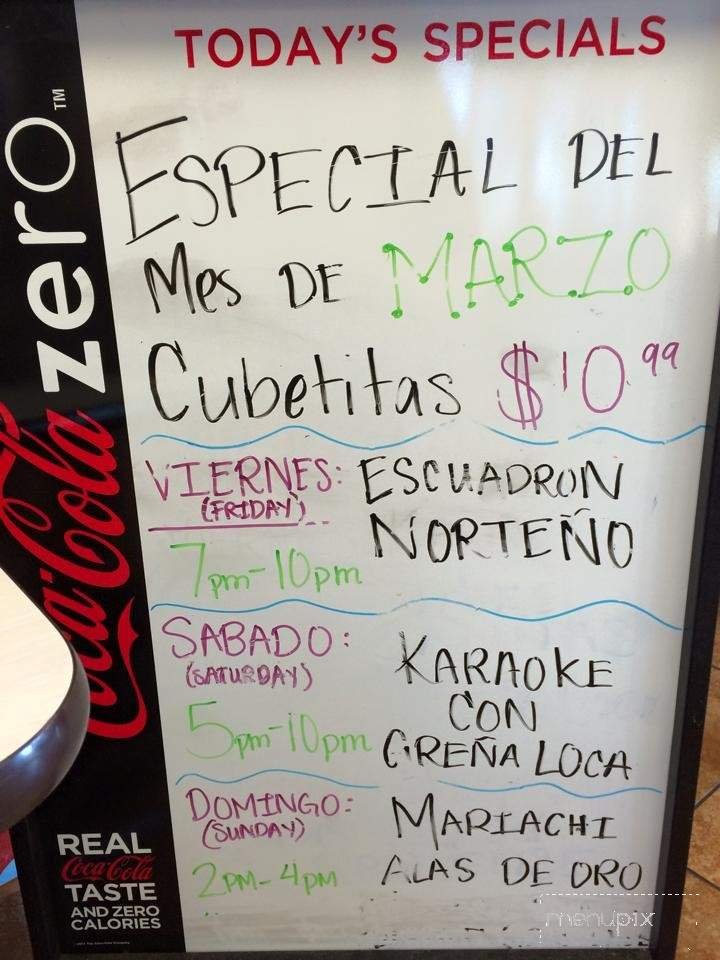 TODAY'S SPECIALS
ESPECIAL DEL
MES DE MARZO
Cubetitas $10.99
VIERNES: ESCUADRON
(FRIDAY) NORTEÑO
7pm-10pm
SABADO: KARAOKE
(SATURDAY) CON
5pm-10pm GREÑA LOCA
DOMINGO: MARIACHI
(SUNDAY)
2PM-4PM ALAS DE ORO
Coca-Cola zero™
REAL
Coca-Cola
TASTE
AND ZERO
CALORIES
menupix